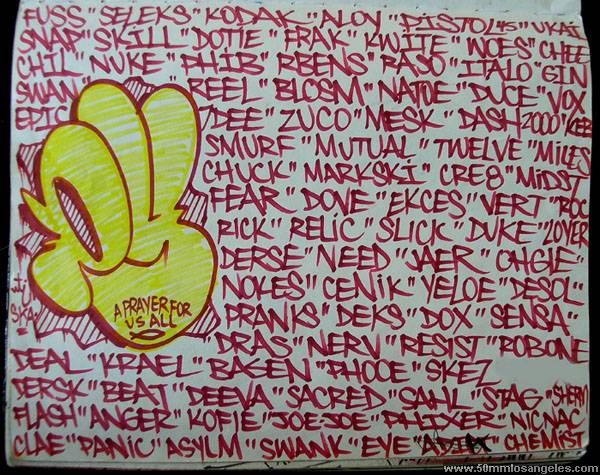 FUSS" SELEKS" KODAK" ALOY" PISTOL45" UKAI
SNAP" SKILL" DOTIE" FRAK" KWITE" WOES" CHEE
CHIL" NUKE" PHIB" RBENS" RASO" ITALO" GIN
SWAN" REEL" BLOSM" NATOE" DUCE" VOX
EPIC" DEE" ZUCO" MESK" DASH 2000"
SMURF" MUTUAL" TWELVE" MILES
CHUCK" MARKSKI" CRE8" MIDST
FEAR" DOVE" EKCES" VERT" ROC
RICK" RELIC" SLICK" DUKE" ZOYER
DERSE" NEED" JAER"
NOKES" CENIK" YELOE" DESOL"
PRANKS" DEKS" DOX" SENSA"
DRAS" NERV" RESIST" ROBONE
A PRAYER FOR
US ALL
SKA
DEAL" KRAEL" BAGEN" PHOOE" SKEZ
DERSK" BEAT" DEEVA" SACRED" SAHL" STAG" SHERM
FLASH" ANGER" KOFIE" JOE-JOE" PHIXER" NICNAC
CLAE" PANIC" ASYLM" SWANK" EYE" CHEMIST
www.50mmlosangeles.com